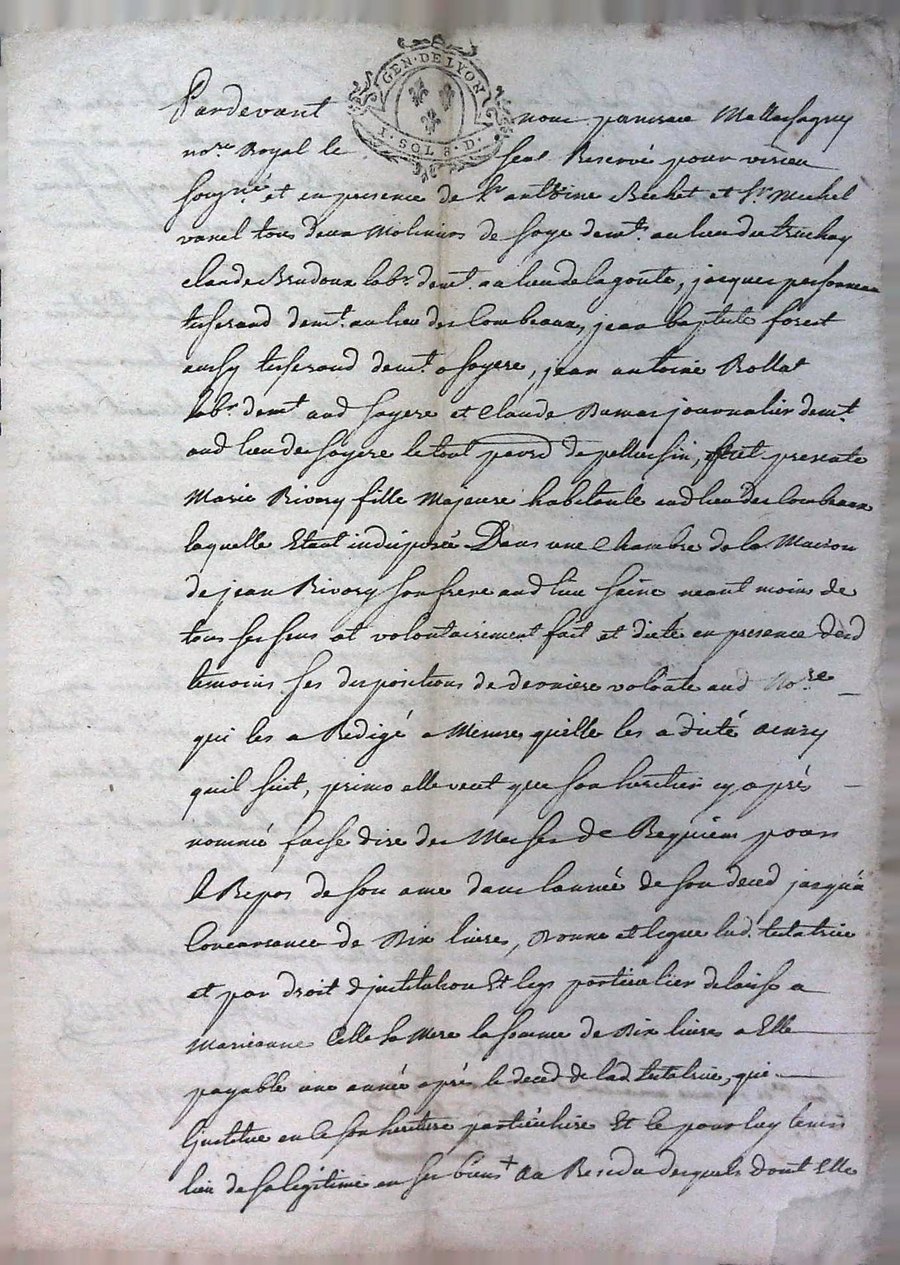 GEN · DE LYON
1 · SOL 8 · D ·
Pardevant nous
no.re Royal le seul Reservé pour virieu
soigné et en presence de Sr antoine Bechet et Sr Michel
vanel tous deux Moliniers de soye demt. au lieu du truchay
claude labr. demt. au lieu de la goute, jacques personneau
tisserand demt. au lieu des Combeaux, jean baptiste forest
aussy tisserand demt. a sagere, jean antoine Rollat
labr. demt. aud sagere et Claude Dumas journalier demt.
aud lieu de sagere le tout parr de pellussin, fut presente
Marie Rivory fille Majeure habitante aud lieu des Combeaux
laquelle Etant indisposée Dans une Chambre de la Maison
de jean Rivory son frere aud lieu saine neant moins de
tous ses sens at volontairement fait et dicté en presence desd
temoins ses dispositions de derniere volonte aud No.re
qui les a Redigé a Mesure quelle les a dicté
quil suit, primo elle veut que son heritier cy après
nommé fasse dire des Messes de Requiem pour
le Repos de son ame dans lannée de son deced jusqua
Concurrance de Dix livres, Donne et legue lad. testatrice
et par droit d'institution Et legs particulier delaisse a
Marianne Celle sa Mere la somme de Dix livres a Elle
payable une année après le deced de lad. testatrice, qui
linstitue en ce son heritiere particuliere Et ce pour luy tenir
lieu de sa légitime en ses biens + Au Residu desquels dont Elle